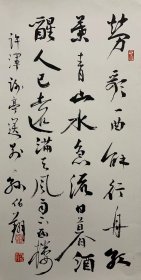 劳歌一曲解行舟红
葉青山水急流日暮酒
醒人已遠满天风雨下西楼
许渾谢亭送别 孙伯翔